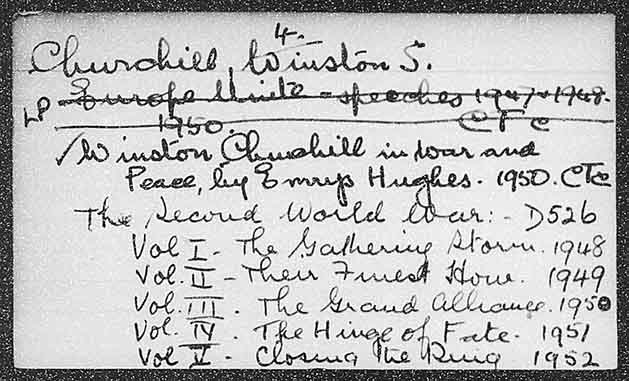 4.
Churchill, Winston S.
LP Europe Unite - speeches 1947 & 1948.
1950. CTc
✓ Winston Churchill in War and
Peace, by Emrys Hughes. 1950. CTc
The Second World War: - D526
Vol I - The Gathering Storm. 1948
Vol. II - Their Finest Hour. 1949
Vol. III. The Grand Alliance. 1950
Vol. IV. The Hinge of Fate. 1951
Vol V - Closing the Ring 1952